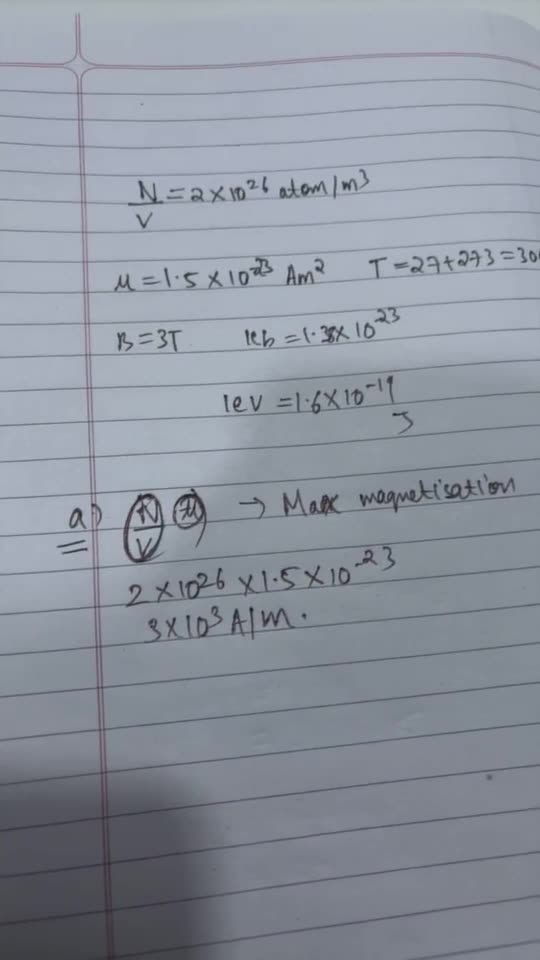 N/V = 2×10²⁶ atom/m³
μ = 1.5 × 10⁻²³ Am² T = 27+273 = 300
B = 3T kb = 1.38× 10⁻²³
1eV = 1.6×10⁻¹⁹
J
a) (N/V) (μ) → Max magnetisation
2 ×10²⁶ ×1.5×10⁻²³
3×10³ A/m.